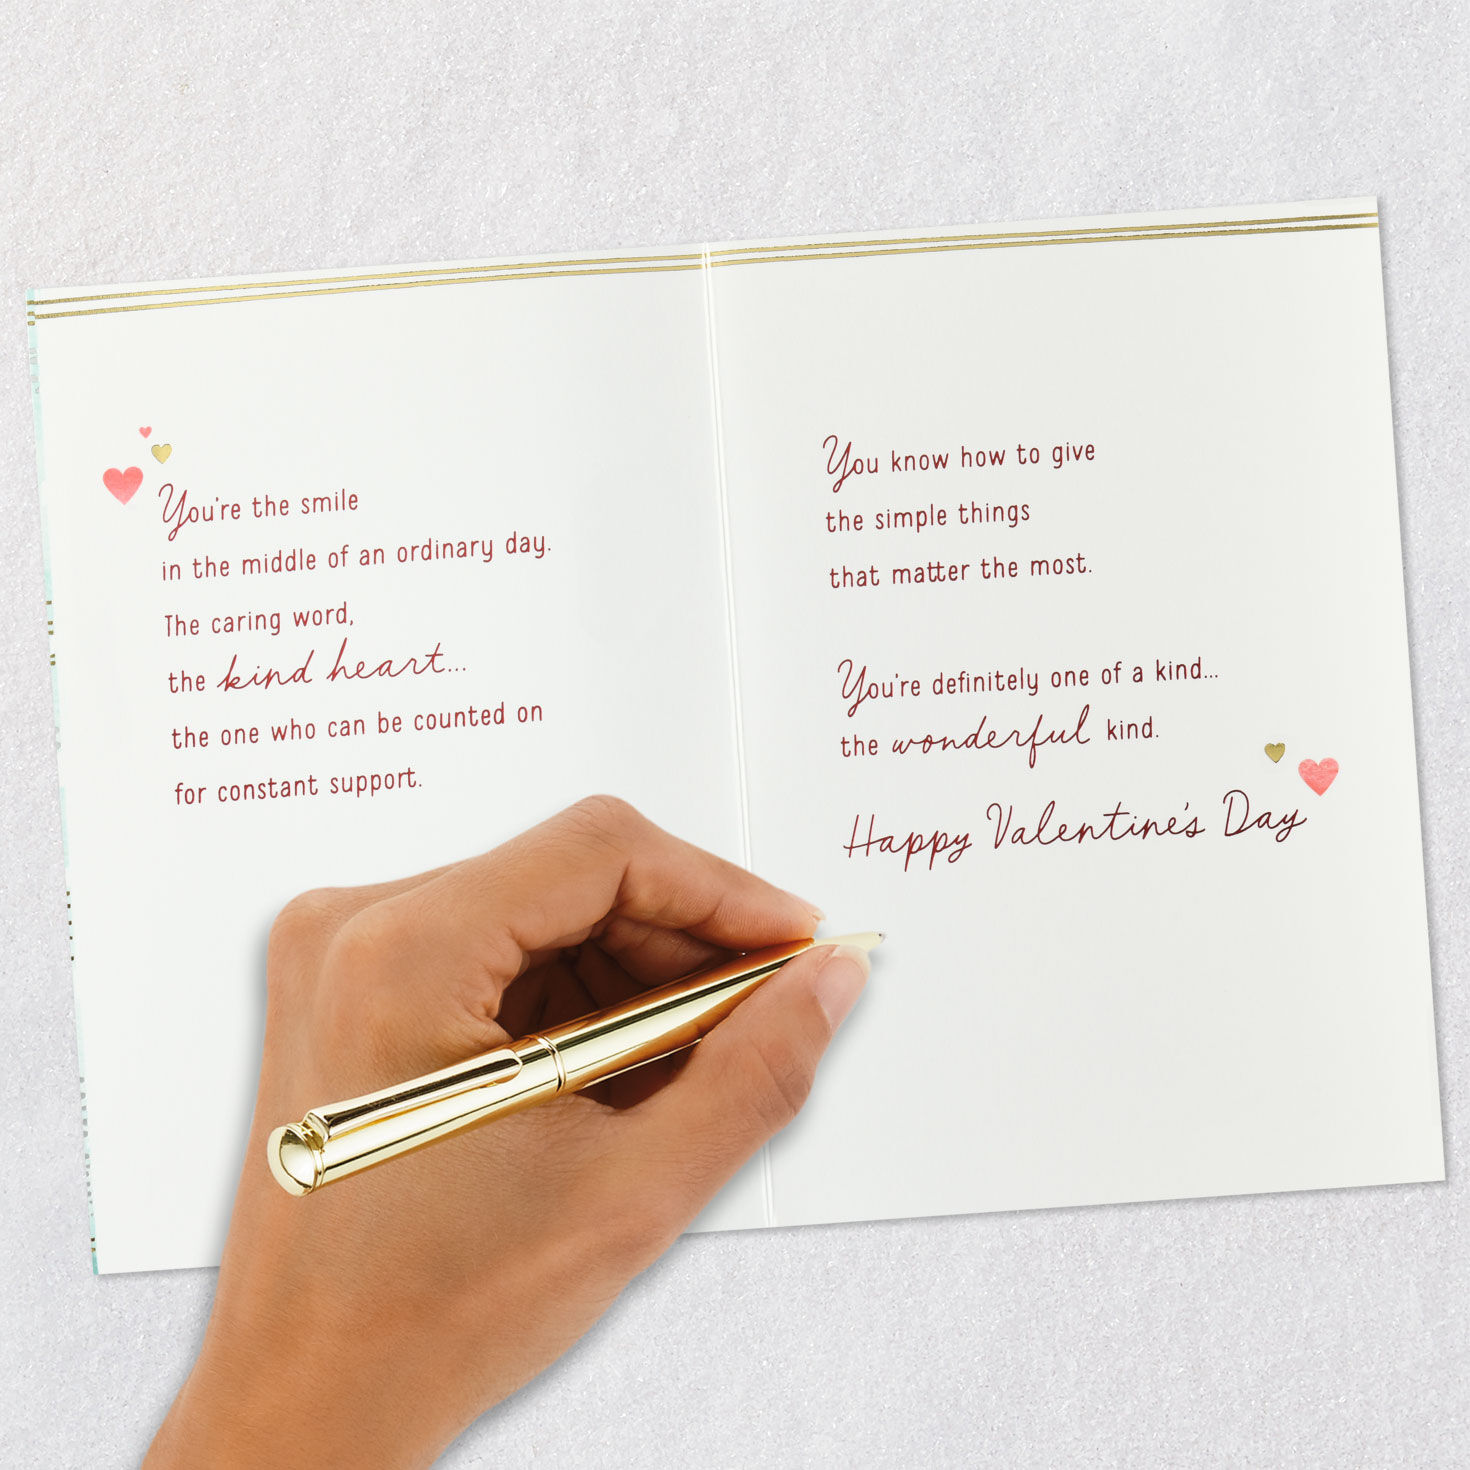 You're the smile
in the middle of an ordinary day.
The caring word,
the kind heart...
the one who can be counted on
for constant support.
You know how to give
the simple things
that matter the most.
You're definitely one of a kind...
the wonderful kind.
Happy Valentine's Day